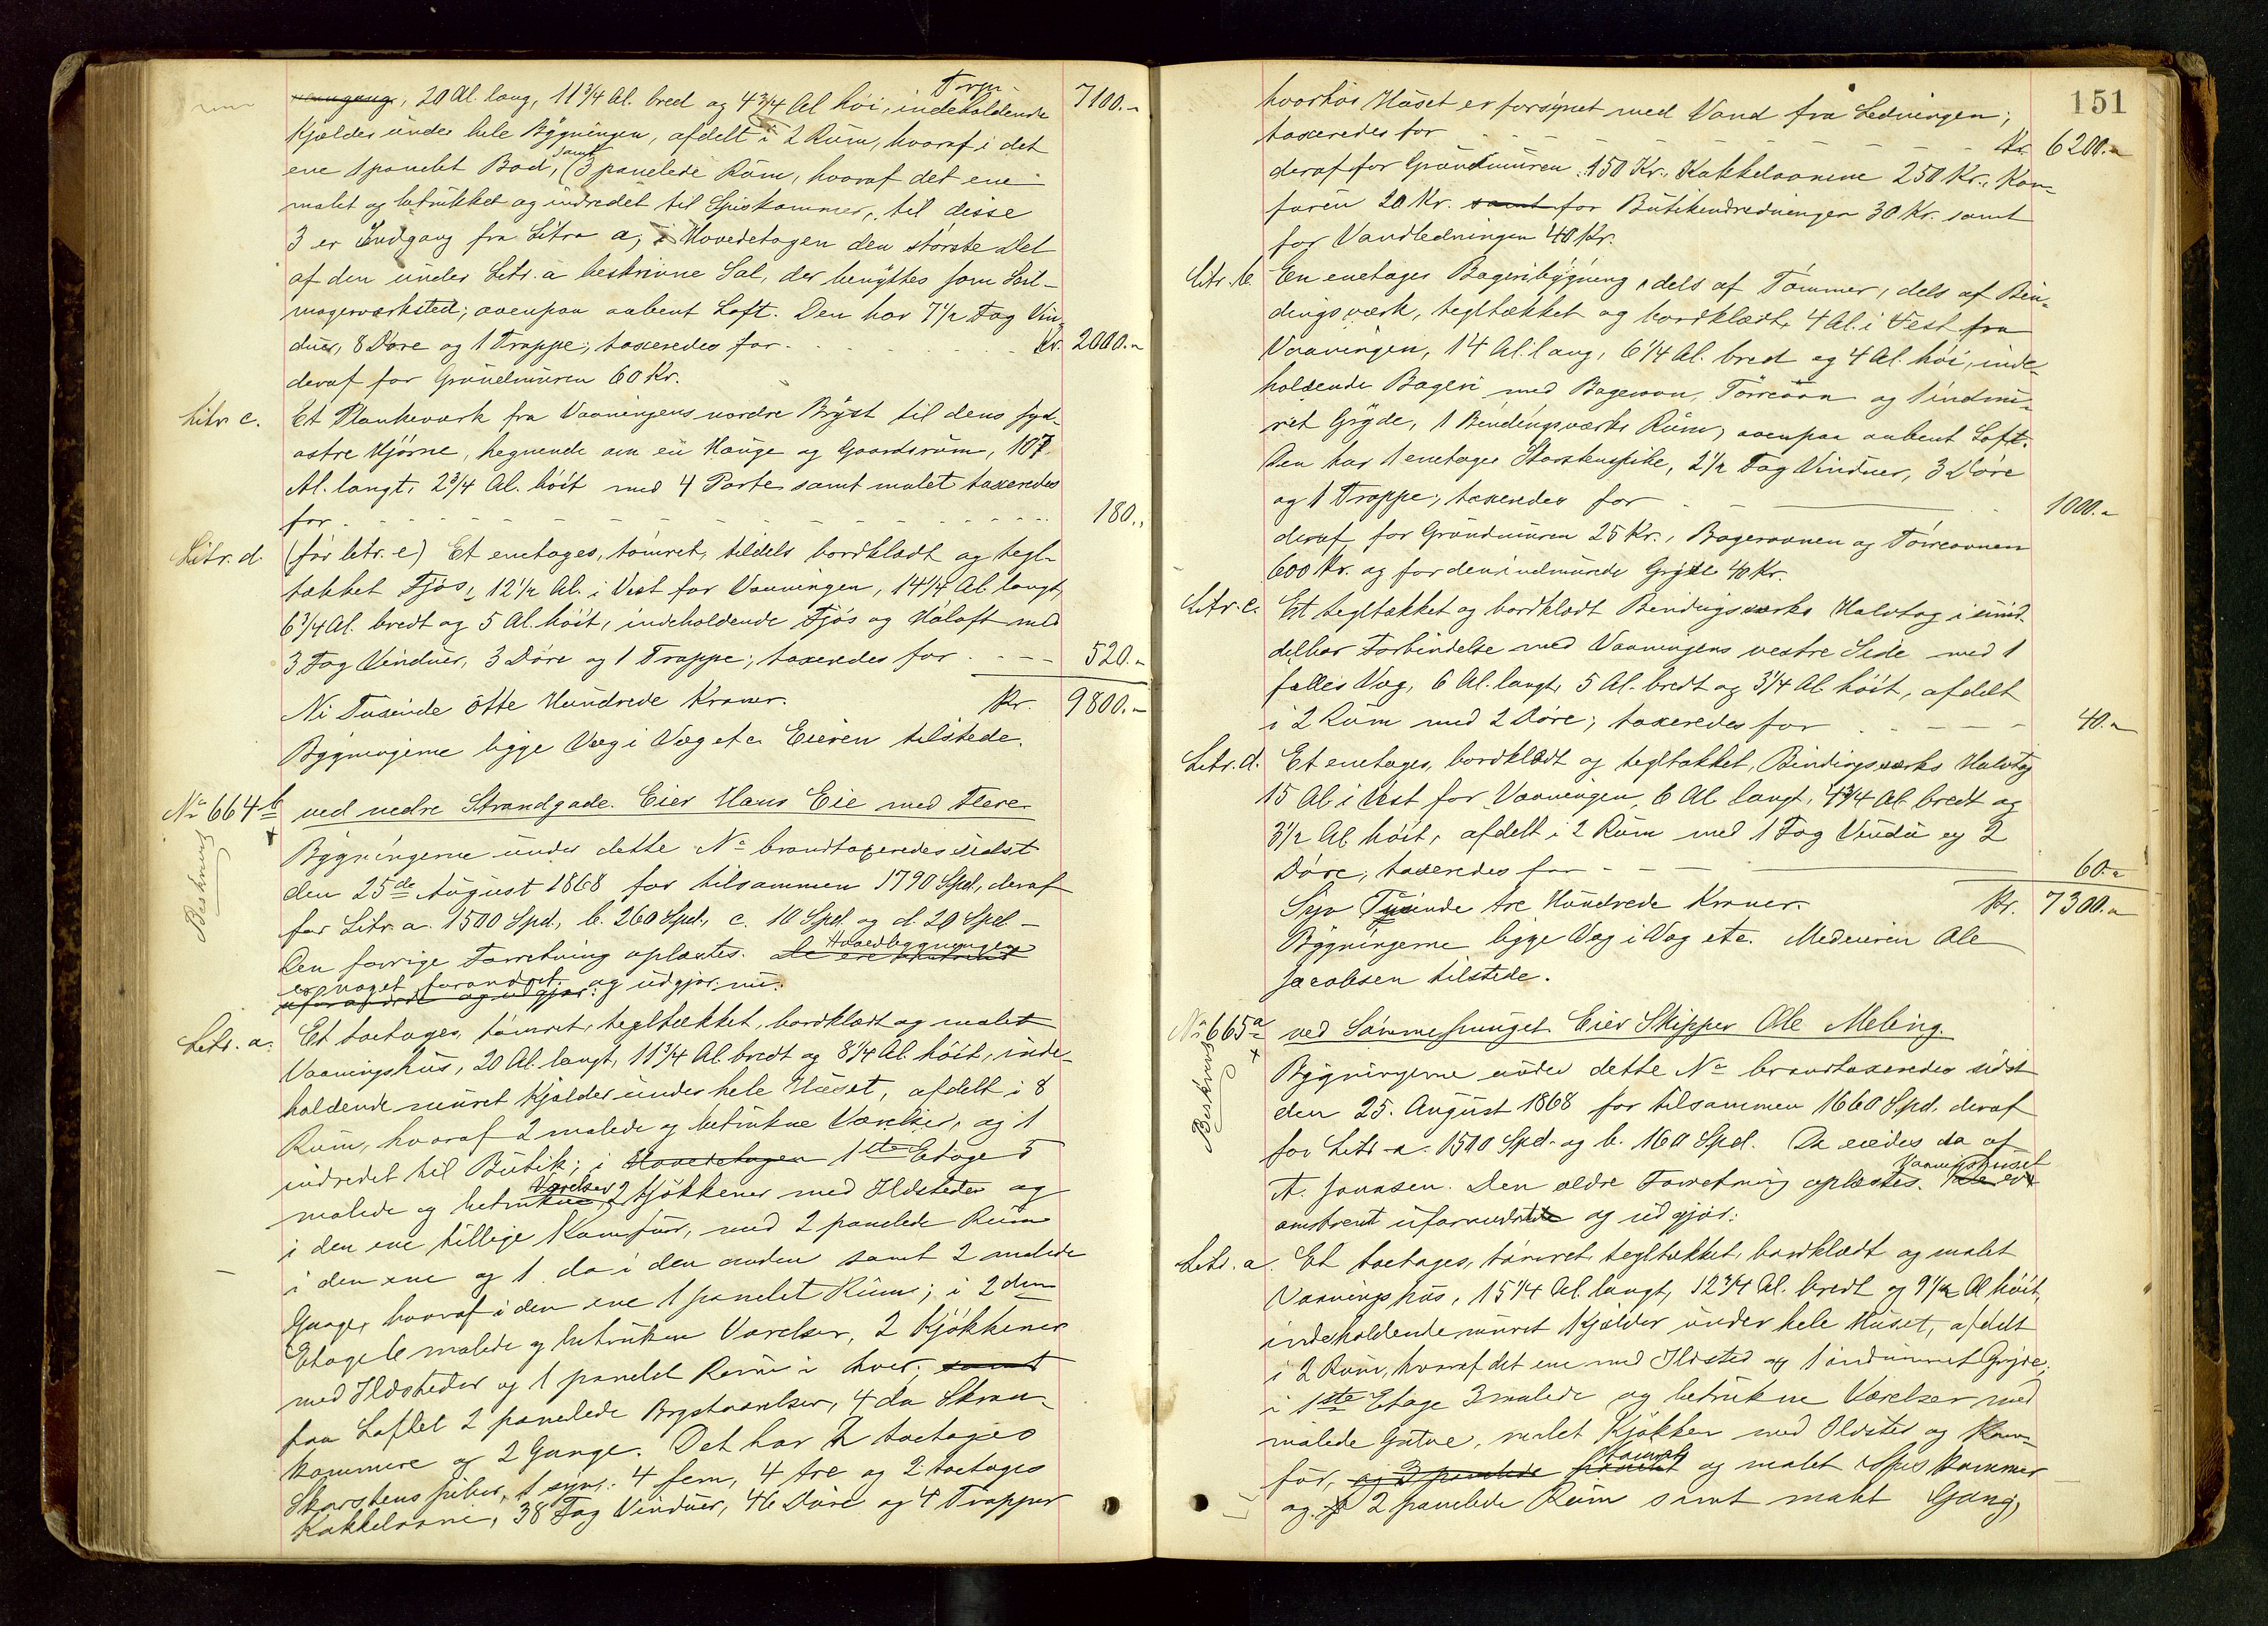 20 Al. lang, 11 3/4 Al. bred og 4 3/4 Al høi, indeholdende 7100.-
Kjælder under hele Bygningen, afdelt i 2 Rum, hvoraf i det
ene 1 panelet Bod, samt 3 panelede Rum, hvoraf det ene
malet og betrukket og indredet til Spiskammer, til disse
3 er Indgang fra Litra a; i Hovedetagen den største Del
af den under Litr. a beskrevne Sal, der benyttes som Seil-
magerværksted; ovenpaa aabent Loft. Den har 7 1/2 Fag Vin-
duer, 8 Døre og 1 Trappe; taxeredes for Kr. 2000.-
deraf for Grundmuren 60 Kr.
Litr c. Et Plankeværk fra Vaaningens nordre Bryst til dens syd-
østre Hjørne, hegnende om en Hauge og Gaardsrum, 107
Al. langt, 2 3/4 Al. høit med 4 Porte samt malet taxeredes
for 180.-
Litr. d. (før litr. e) Et enetages, tømret, tildels bordklædt og tegl-
tækket Fjøs, 12 1/2 Al. i Vest for Vaaningen, 14 1/4 Al langt,
6 3/4 Al. bredt og 5 Al. høit, indeholdende Fjøs og Høloft med
3 Fag Vinduer, 3 Døre og 1 Trappe; taxeredes for 520.-
Ni Tusinde otte Hundrede Kroner. Kr. 9800.-
Bygningerne ligge Væg i Væg etc. Eieren tilstede.
No 664 b ved nedre Strandgade. Eier Hans Eie med Flere.
Beskrevet
Bygningerne under dette No brandtaxeredes sidst
den 25de August 1868 for tilsammen 1790 Spd, deraf
for Litr. a. 1500 Spd., b. 260 Spd., c. 10 Spd. og d. 20 Spd. -
Den forrige Forretning oplæstes. Hovedbygningen
er noget forandret og udgjør nu:
Litr. a. Et toetages, tømret, tegltækket, bordklædt og malet
Vaaningshus, 20 Al. langt, 11 3/4 Al. bredt og 8 1/4 Al. høit, inde-
holdende muret Kjælder under hele Huset, afdelt i 8
Rum, hvoraf 2 malede og betrukne Værelser, og 1
indredet til Butik; i Hovedetagen 1ste Etage 5
malede og betrukne Værelser, 2 Kjøkkener med Ildsteder og
i den ene tillige Komfur, med 2 panelede Rum
i den ene og 1 do i den anden samt 2 malede
Gange, hvoraf i den ene 1 panelet Rum; i 2den
Etage 6 malede og betrukne Værelser, 2 Kjøkkener
med Ildsteder og 1 panelet Rum i hver; samt
paa Loftet 2 panelede Brystværelser, 4 do Skraa-
kammere og 2 Gange. Det har 2 toetages
Skorstenspiber, 1 syv-, 4 fem, 4 tre og 2 toetages
Kakkelovne, 38 Fag Vinduer, 46 Døre og 4 Trapper
151
hvorhos Huset er forsynet med Vand fra Ledningen;
taxeredes for Kr. 6200.-
deraf for Grundmuren 150 Kr., Kakkelovnene 250 Kr., Kom-
furen 20 Kr. samt for Butikindredningen 30 Kr. samt
for Vandledningen 40 Kr.
Litr. b. En enetages Bageribygning, dels af Tømmer, dels af Bin-
dingsværk, tegltækket og bordklædt, 4 Al. i Vest fra
Vaaningen, 14 Al. lang, 6 1/4 Al. bred og 4 Al. høi, inde-
holdende Bageri med Bagerovn, Tørreovn og 1 indmu-
ret Gryde, 1 Bindingsværks Rum, ovenpaa aabent Loft.
Den har 1 enetages Skorstenspibe, 2 1/2 Fag Vinduer, 3 Døre
og 1 Trappe; taxeredes for 1000.-
deraf for Grundmuren 25 Kr., Bagerovnen og Tørreovnen
600 Kr. og for den indmurede Gryde 40 Kr.
Litr. c. Et tegltækket og bordklædt Bindingsværks Halvtag i umid-
delbar Forbindelse med Vaaningens vestre Side med 1
fælles Væg, 6 Al. langt, 5 Al. bredt og 3 1/4 Al. høit, afdelt
i 2 Rum med 2 Døre; taxeredes for 40.-
Litr. d. Et enetages, bordklædt og tegltækket, Bindingsværks Halvtag
15 Al. i Vest for Vaaningen, 6 Al langt, 4 3/4 Al. bredt og
3 1/2 Al. høit, afdelt i 2 Rum med 1 Fag Vindu og 2
Døre; taxeredes for 60.-
Syv Tusinde tre Hundrede Kroner. Kr. 7300.-
Bygningerne ligge Væg i Væg etc. Medeieren Ole
Jacobsen tilstede.
No 665 a ved Sømmesmuget. Eier Skipper Ole Meling.
Beskrevet
Bygningerne under dette No brandtaxeredes sidst
den 25. August 1868 for tilsammen 1660 Spd. deraf
for Litr a. 1500 Spd. og b. 160 Spd. De eiedes da af
A. Jonasen. Den ældre Forretning oplæstes. Vaaningshuset er
omtrent uforandret og udgjør:
Litr. a. Et toetages, tømret, tegltækket, bordklædt og malet
Vaaningshus, 15 1/4 Al. langt, 12 3/4 Al. bredt og 9 1/2 Al høit,
indeholdende muret Kjælder under hele Huset, afdelt
i 2 Rum, hvoraf det ene med Ildsted og 1 indmuret Gryde;
i 1ste Etage 3 malede og betrukne Værelser med
malede Gulve, malet Kjøkken med Ildsted og Kom-
fur, og 3 panelede og malet Spiskammer
og 2 panelede Rum samt malet Gang,